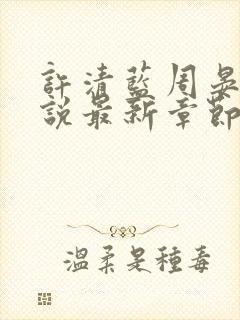 許清藍周晏
說最新章節
溫柔是種毒